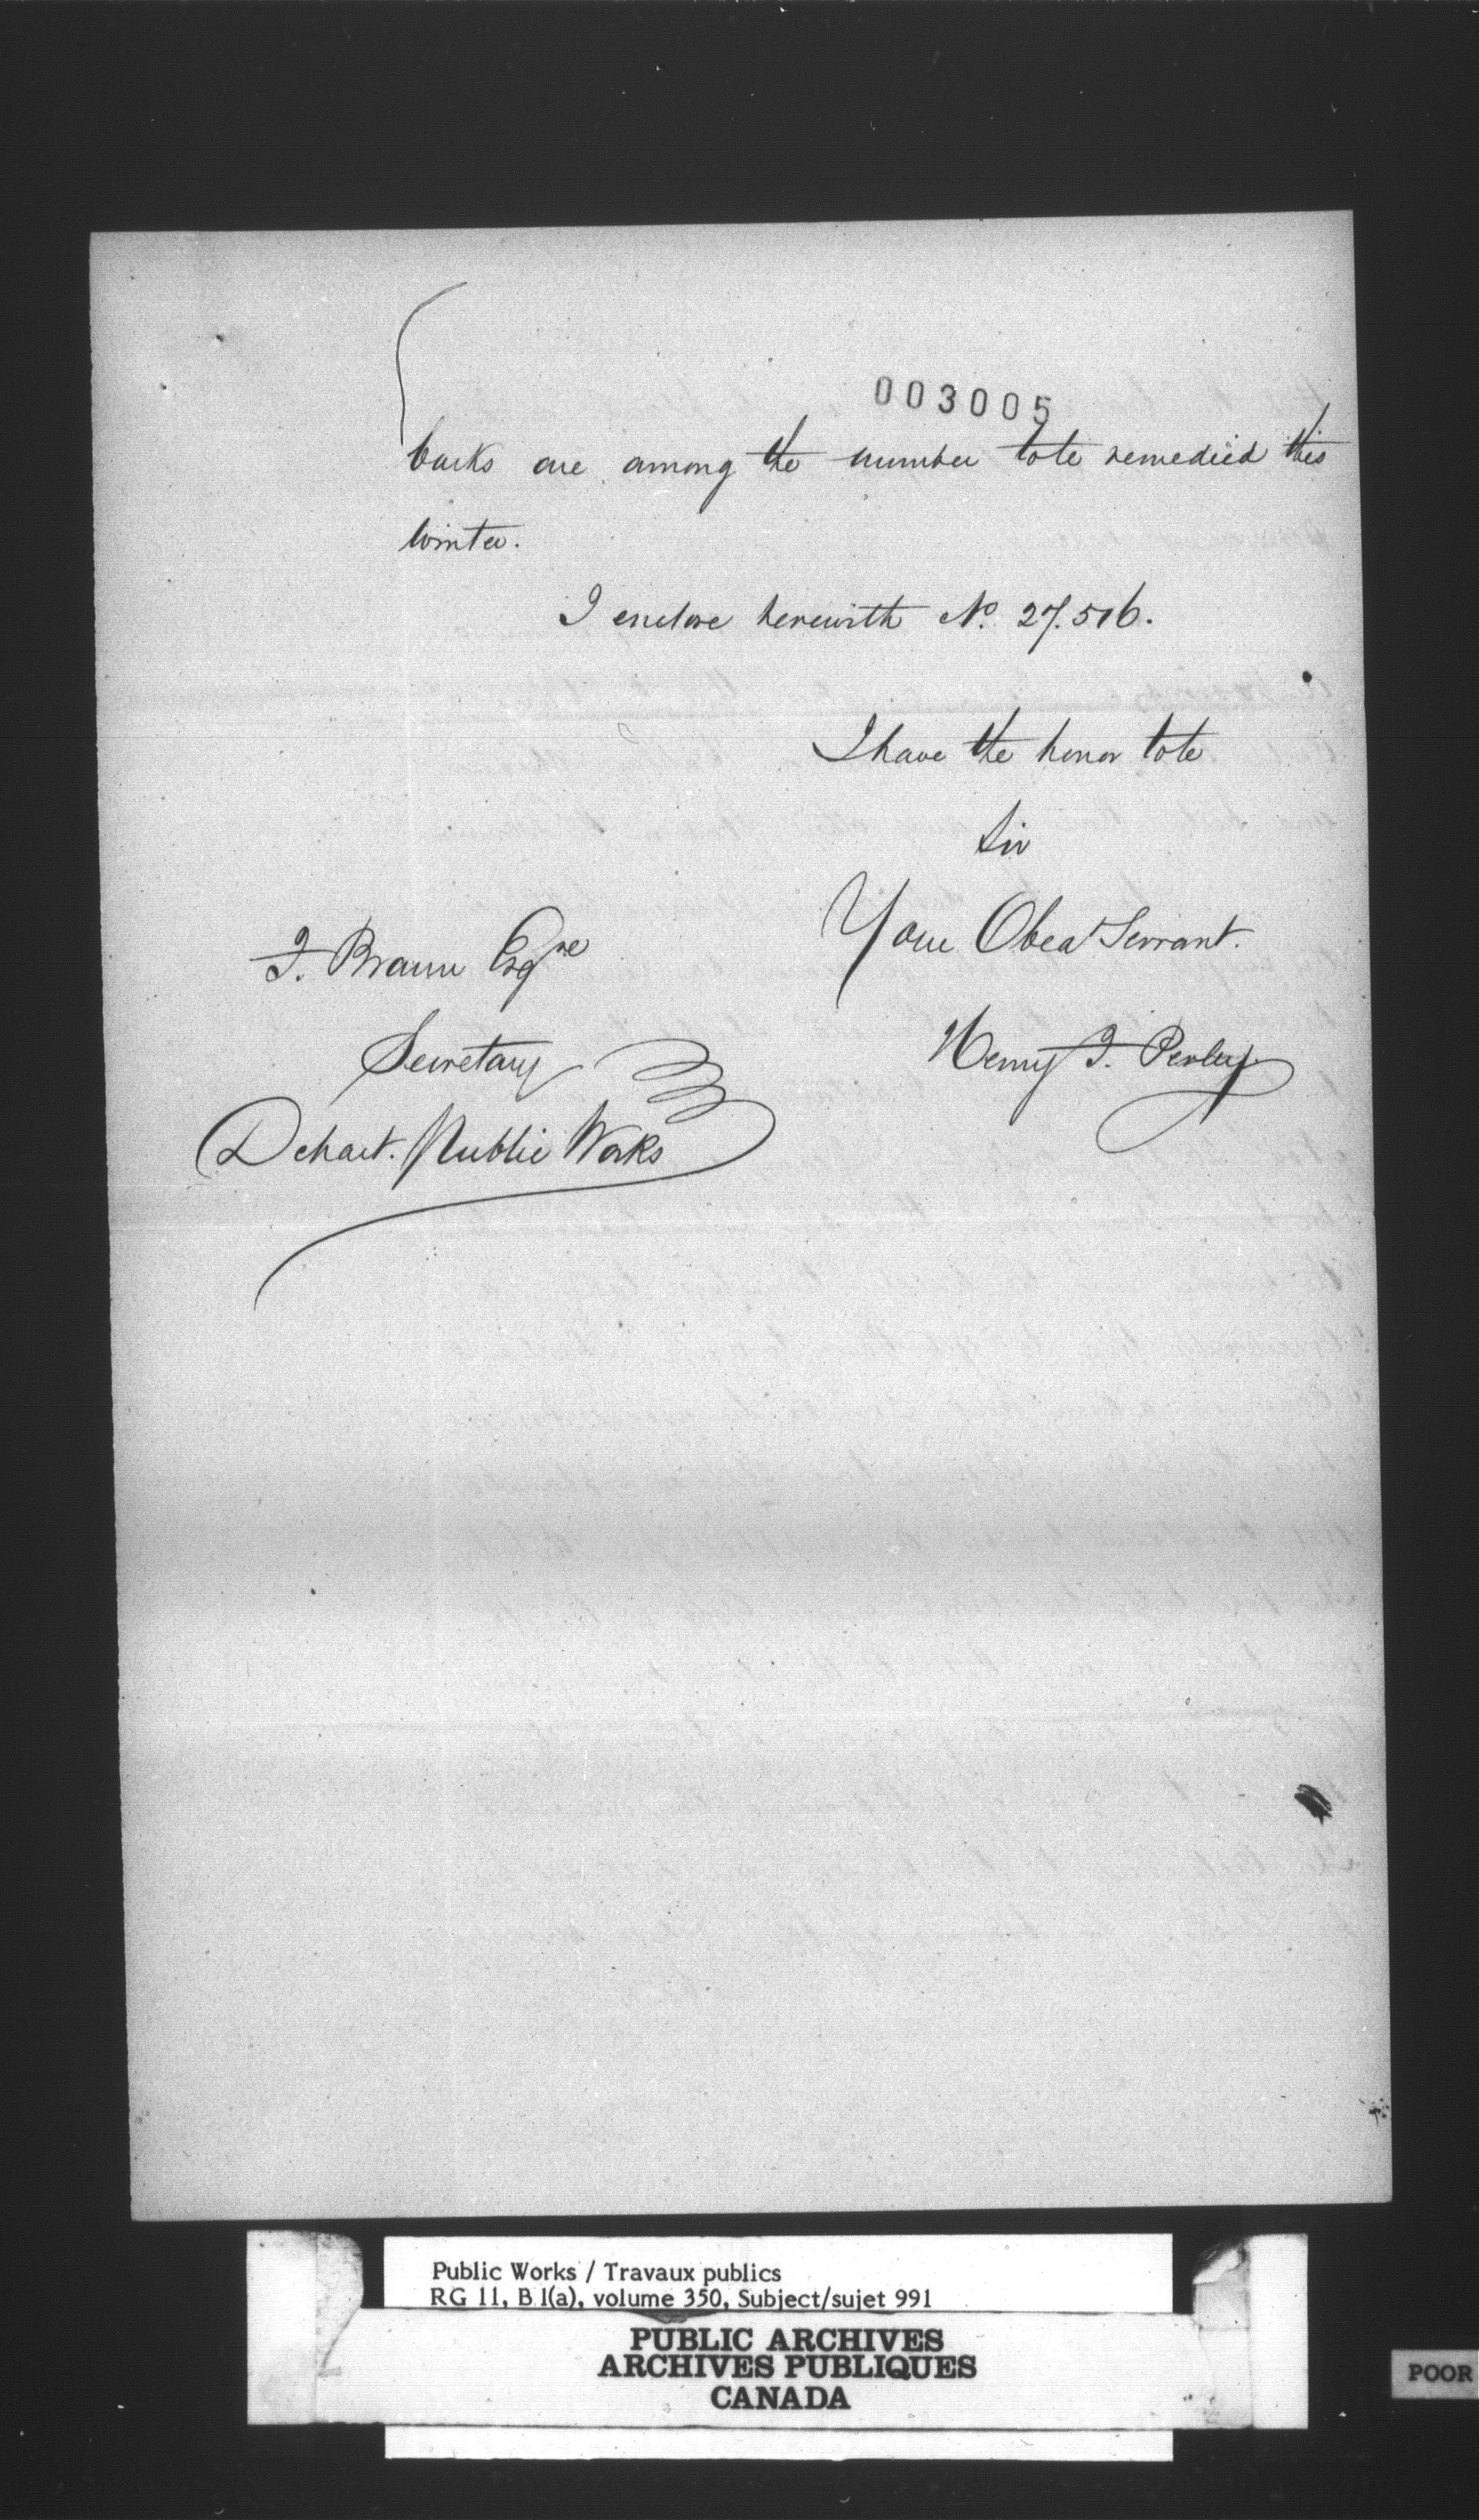 003005
backs are among the number to be remedied this
winter.
I enclose herewith No. 27.516.
I have the honor to be
Sir
Your Obedt Servant.
F. Braun Esqre
Henry F. Perley
Secretary
Depart. Public Works
Public Works / Travaux publics
RG 11, B 1(a), volume 350, Subject/sujet 991
PUBLIC ARCHIVES
ARCHIVES PUBLIQUES
CANADA
POOR